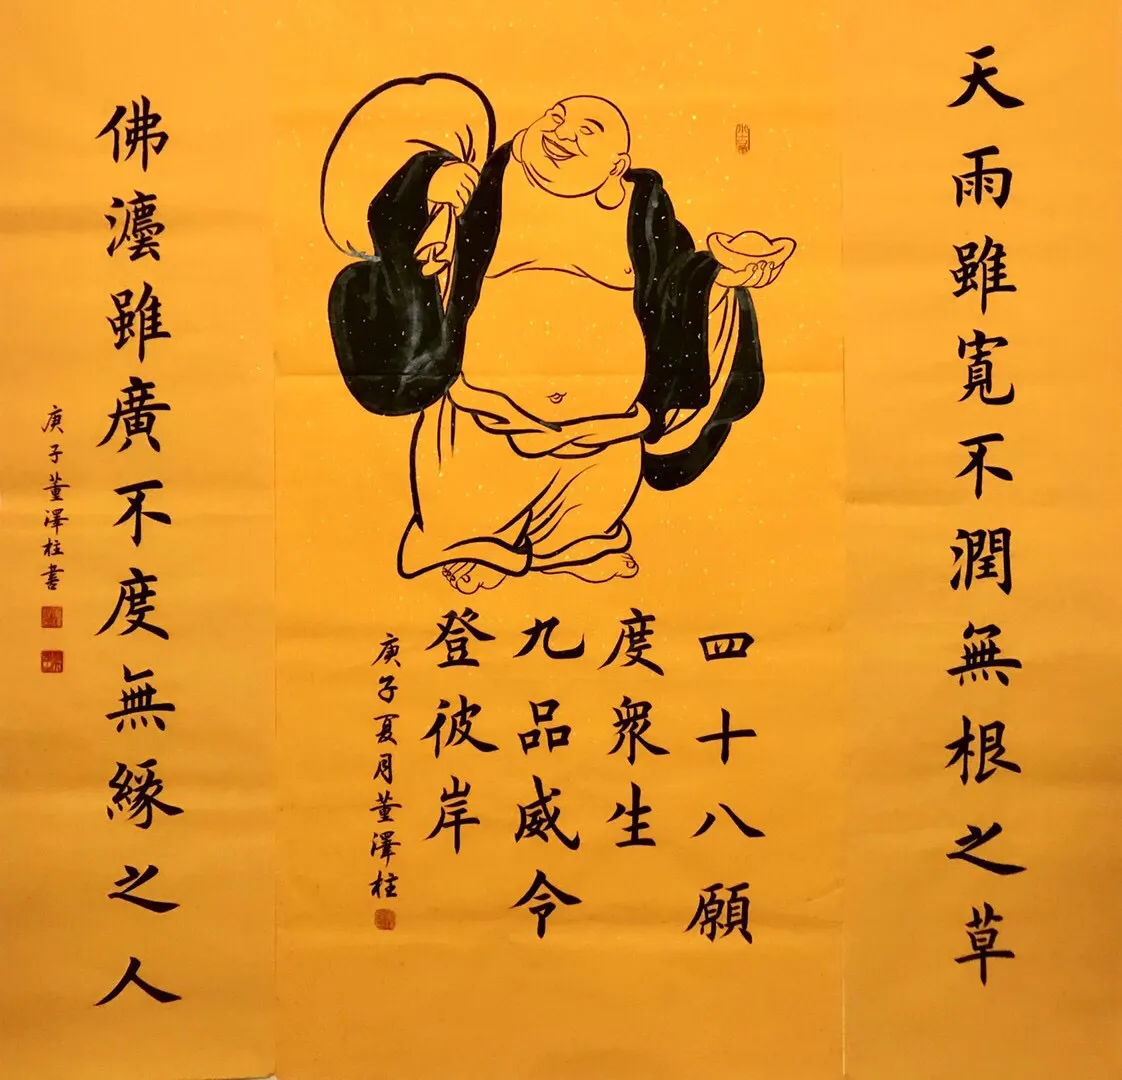 天雨雖寬不潤無根之草
四十八願
度衆生
九品威令
登彼岸
庚子夏月董澤柱
佛灋雖廣不度無緣之人
庚子董澤柱書